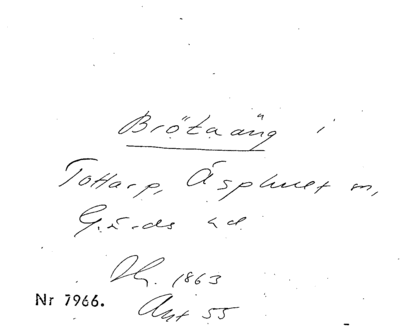 Brötaäng i
Tottarp, Äsphult m,
Gärds hd
1863
Nr 7966.
Akt 55